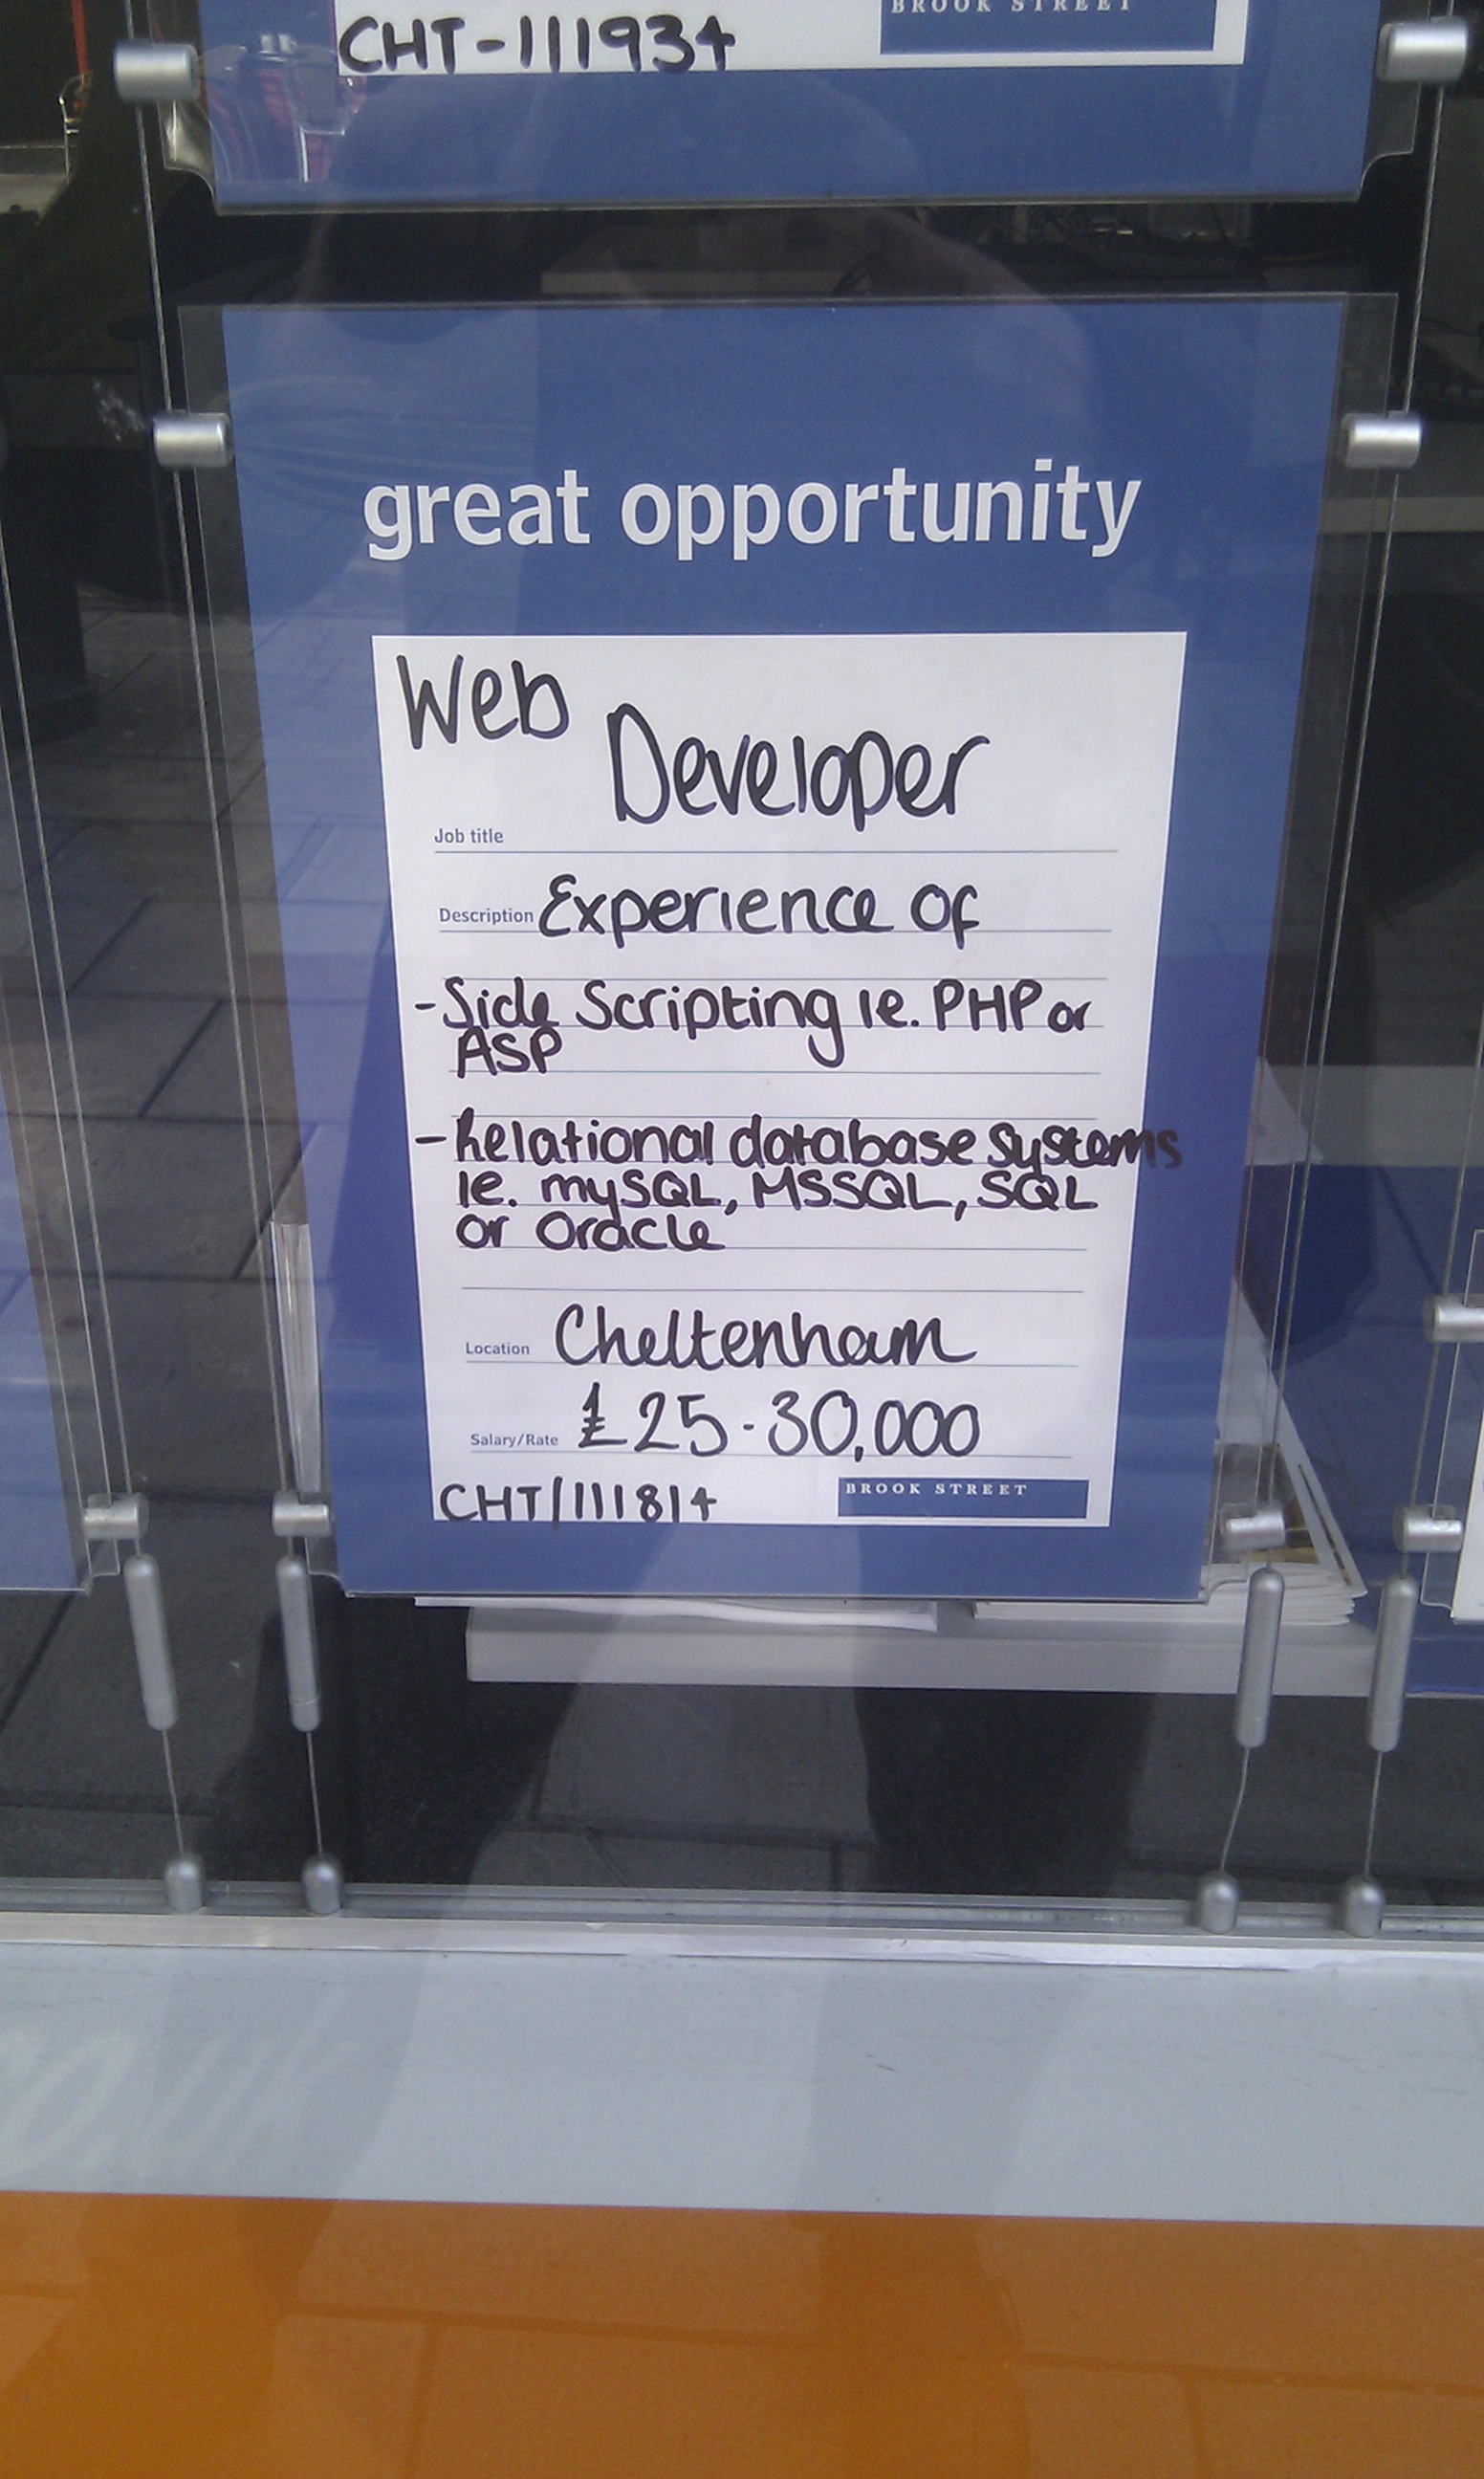 CHT-111934
BROOK STREET
great opportunity
Web
Developer
Job title
Description Experience of
- Side Scripting ie. PHP or
ASP
- Relational database systems
ie. mySQL, MSSQL, SQL
or Oracle
Location Cheltenham
Salary/Rate £25-30,000
CHT/111814
BROOK STREET